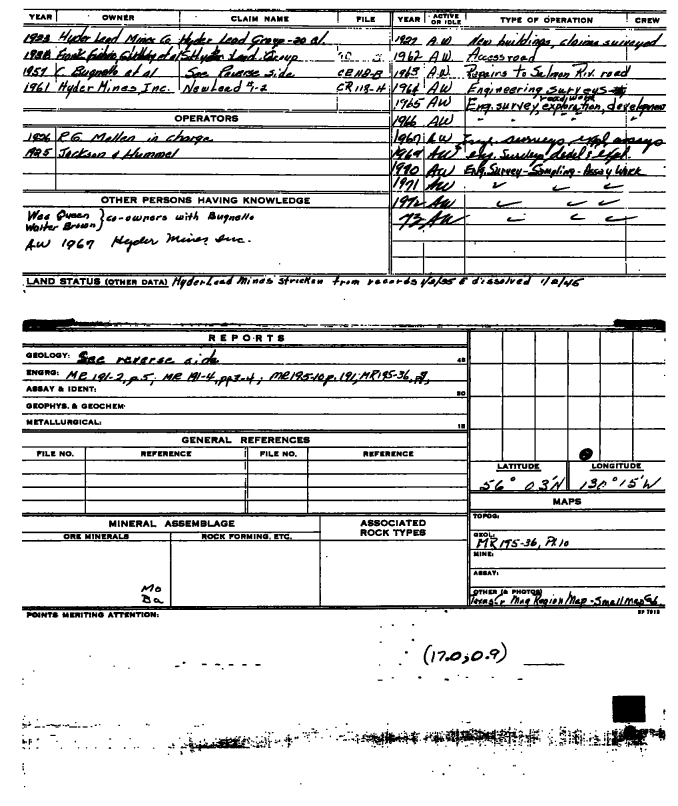 YEAR OWNER CLAIM NAME FILE YEAR ACTIVE OR IDLE TYPE OF OPERATION CREW
1922 Hyder Lead Mines Co Hyder Lead Group-20 cl. 1927 A.W New buildings, claims surveyed
1938 Frank et al Hyder Lead Group 1962 A.W Access road
1957 C. Bugnello et al See Reverse side 1963 A.W Repairs to Salmon Riv. road
1961 Hyder Mines, Inc. New Lead #1-2 CR 118-H 1964 AW Engineering surveys
1965 AW Eng. survey, road work, exploration, development
OPERATORS 1966 AW " " "
1926 P.G. Mellen in charge 1967 AW Eng. surveys expl assays
1925 Jackson & Hummel 1969 AW eng. surveys devel & expl.
1970 AW Eng. Survey-Sampling-Assay Work
1971 AW ✓ ✓ ✓
OTHER PERSONS HAVING KNOWLEDGE 1972 AW ✓ ✓ ✓
Wes Queen } co-owners with Bugnello 73 AW ✓ ✓ ✓
Walter Brown
AW 1967 Hyder Mines Inc.
LAND STATUS (OTHER DATA) Hyder Lead Mines stricken from records 1/2/35 & dissolved 1/2/45
REPORTS
GEOLOGY: See reverse side
ENGRG: MR 191-2, p.5; MR 191-4, pp3-4; MR195-10 p.191; MR195-36,
ASSAY & IDENT:
GEOPHYS. & GEOCHEM:
METALLURGICAL:
GENERAL REFERENCES
FILE NO. REFERENCE FILE NO. REFERENCE
LATITUDE LONGITUDE
56° 03'N 130° 15'W
MAPS
TOPOG:
MINERAL ASSEMBLAGE ASSOCIATED ROCK TYPES
ORE MINERALS ROCK FORMING, ETC.
GEOL: MR 195-36, Pl 10
MINE:
ASSAY:
Mo
Ba
OTHER (& PHOTOS)
Mng Region Map - Small map
POINTS MERITING ATTENTION:
(17.0; 0.9)